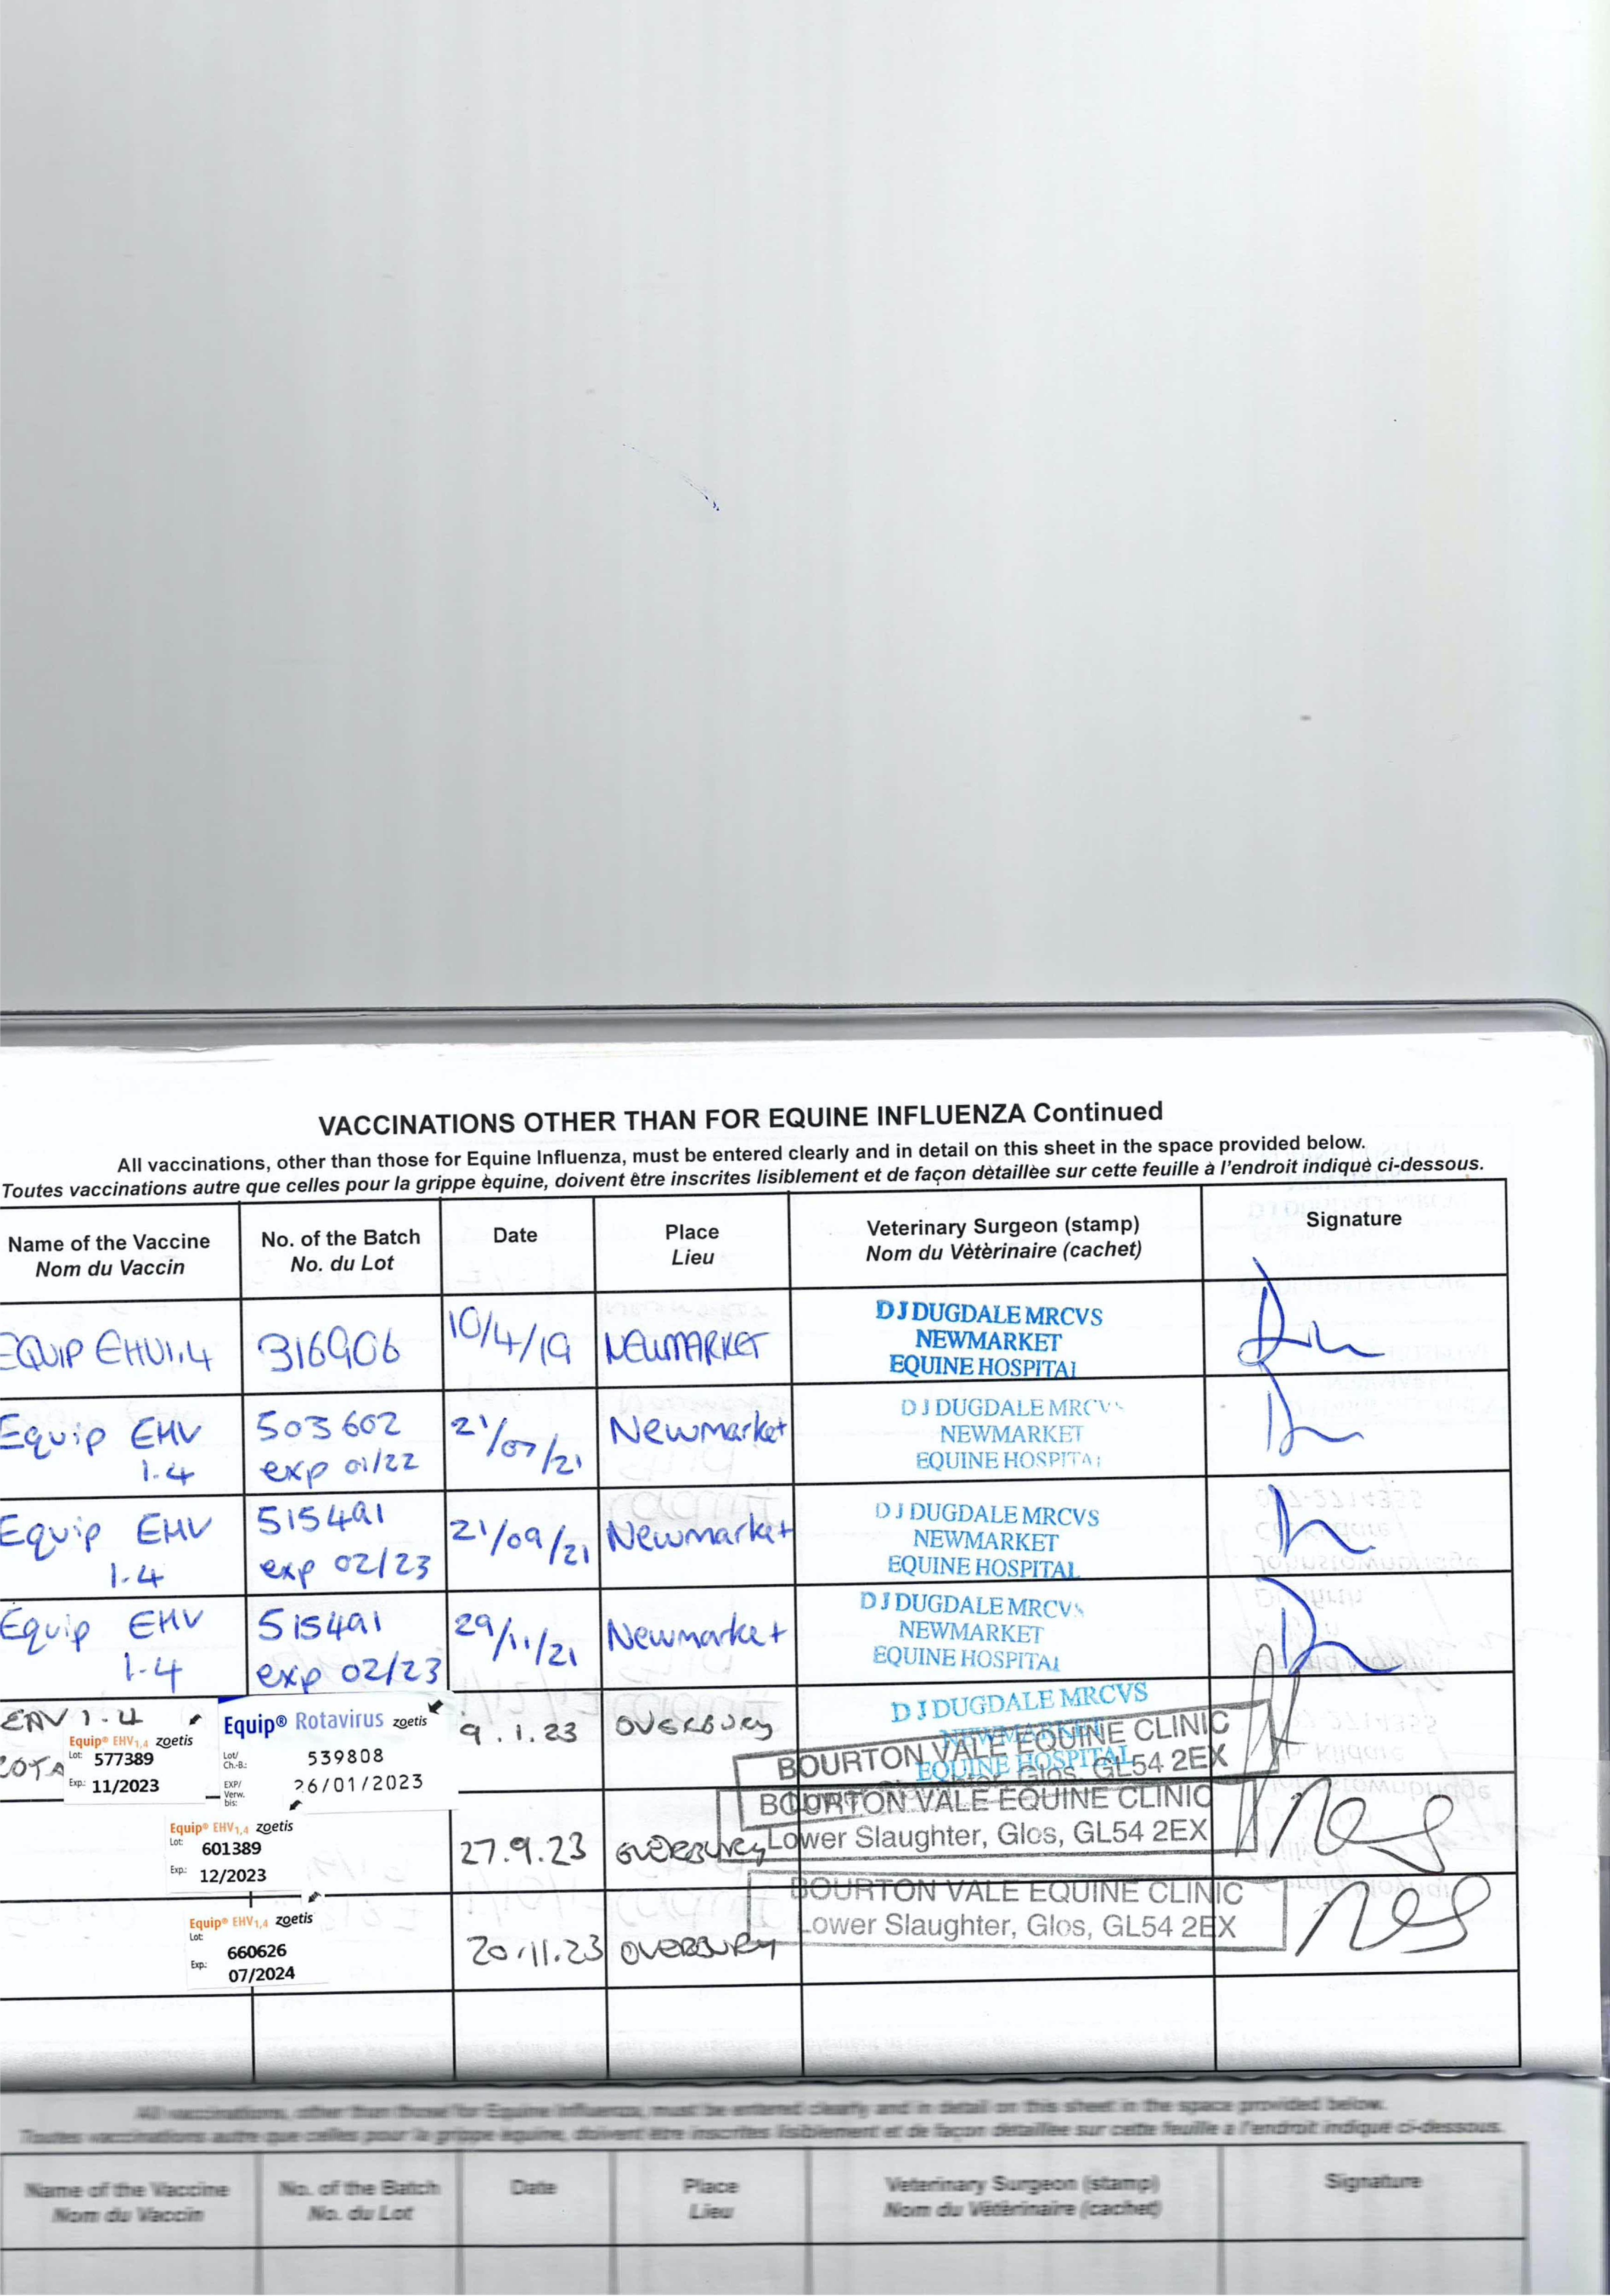 VACCINATIONS OTHER THAN FOR EQUINE INFLUENZA Continued
All vaccinations, other than those for Equine Influenza, must be entered clearly and in detail on this sheet in the space provided below.
Toutes vaccinations autre que celles pour la grippe èquine, doivent être inscrites lisiblement et de façon dètaillèe sur cette feuille à l'endroit indiquè ci-dessous.
Name of the Vaccine
Nom du Vaccin
No. of the Batch
No. du Lot
Date
Place
Lieu
Veterinary Surgeon (stamp)
Nom du Vètèrinaire (cachet)
Signature
EQUIP EHV1.4
316906
10/4/19
NEWMARKET
D J DUGDALE MRCVS
NEWMARKET
EQUINE HOSPITAL
Equip EHV
1.4
503602
exp 01/22
21/07/21
Newmarket
D J DUGDALE MRCVS
NEWMARKET
EQUINE HOSPITAL
Equip EHV
1.4
515491
exp 02/23
21/09/21
Newmarket
D J DUGDALE MRCVS
NEWMARKET
EQUINE HOSPITAL
Equip EHV
1-4
515491
exp 02/23
29/11/21
Newmarket
D J DUGDALE MRCVS
NEWMARKET
EQUINE HOSPITAL
1.4
Equip® EHV1,4 zoetis
Lot: 577389
Exp.: 11/2023
Equip® Rotavirus zoetis
Lot/
Ch.-B.:
539808
EXP/
Verw.
bis:
26/01/2023
9.1.23
OVERBURY
D J DUGDALE MRCVS
NEWMARKET
EQUINE HOSPITAL
BOURTON VALE EQUINE CLINIC
Glos, GL54 2EX
Equip® EHV1,4 zoetis
Lot: 601389
Exp.: 12/2023
27.9.23
OVERBURY
BOURTON VALE EQUINE CLINIC
Lower Slaughter, Glos, GL54 2EX
Equip® EHV1,4 zoetis
Lot:
660626
Exp.:
07/2024
20.11.23
OVERBURY
BOURTON VALE EQUINE CLINIC
Lower Slaughter, Glos, GL54 2EX
All vaccinations, other than those for Equine Influenza, must be entered clearly and in detail on this sheet in the space provided below.
Toutes vaccinations autre que celles pour la grippe èquine, doivent être inscrites lisiblement et de façon dètaillèe sur cette feuille à l'endroit indiquè ci-dessous.
Name of the Vaccine
Nom du Vaccin
No. of the Batch
No. du Lot
Date
Place
Lieu
Veterinary Surgeon (stamp)
Nom du Vètèrinaire (cachet)
Signature